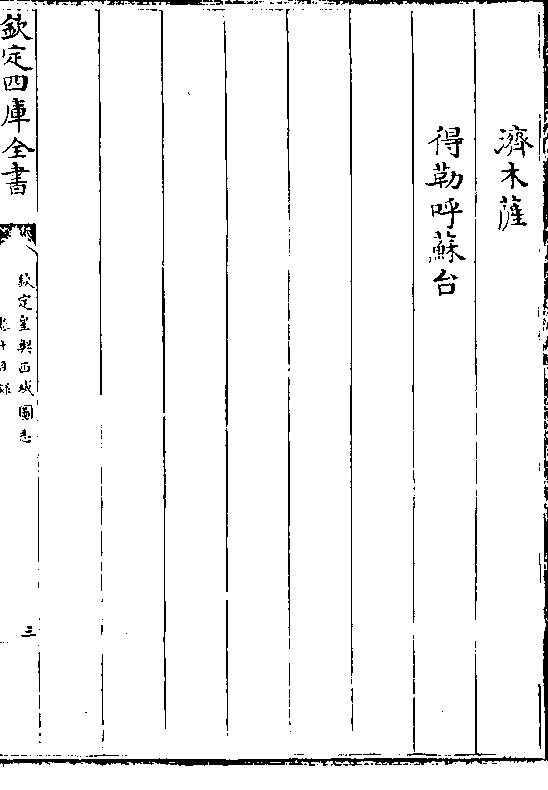 濟木薩
得勒呼蘇台
欽定四庫全書
欽定皇輿西域圖志
卷十目錄
三